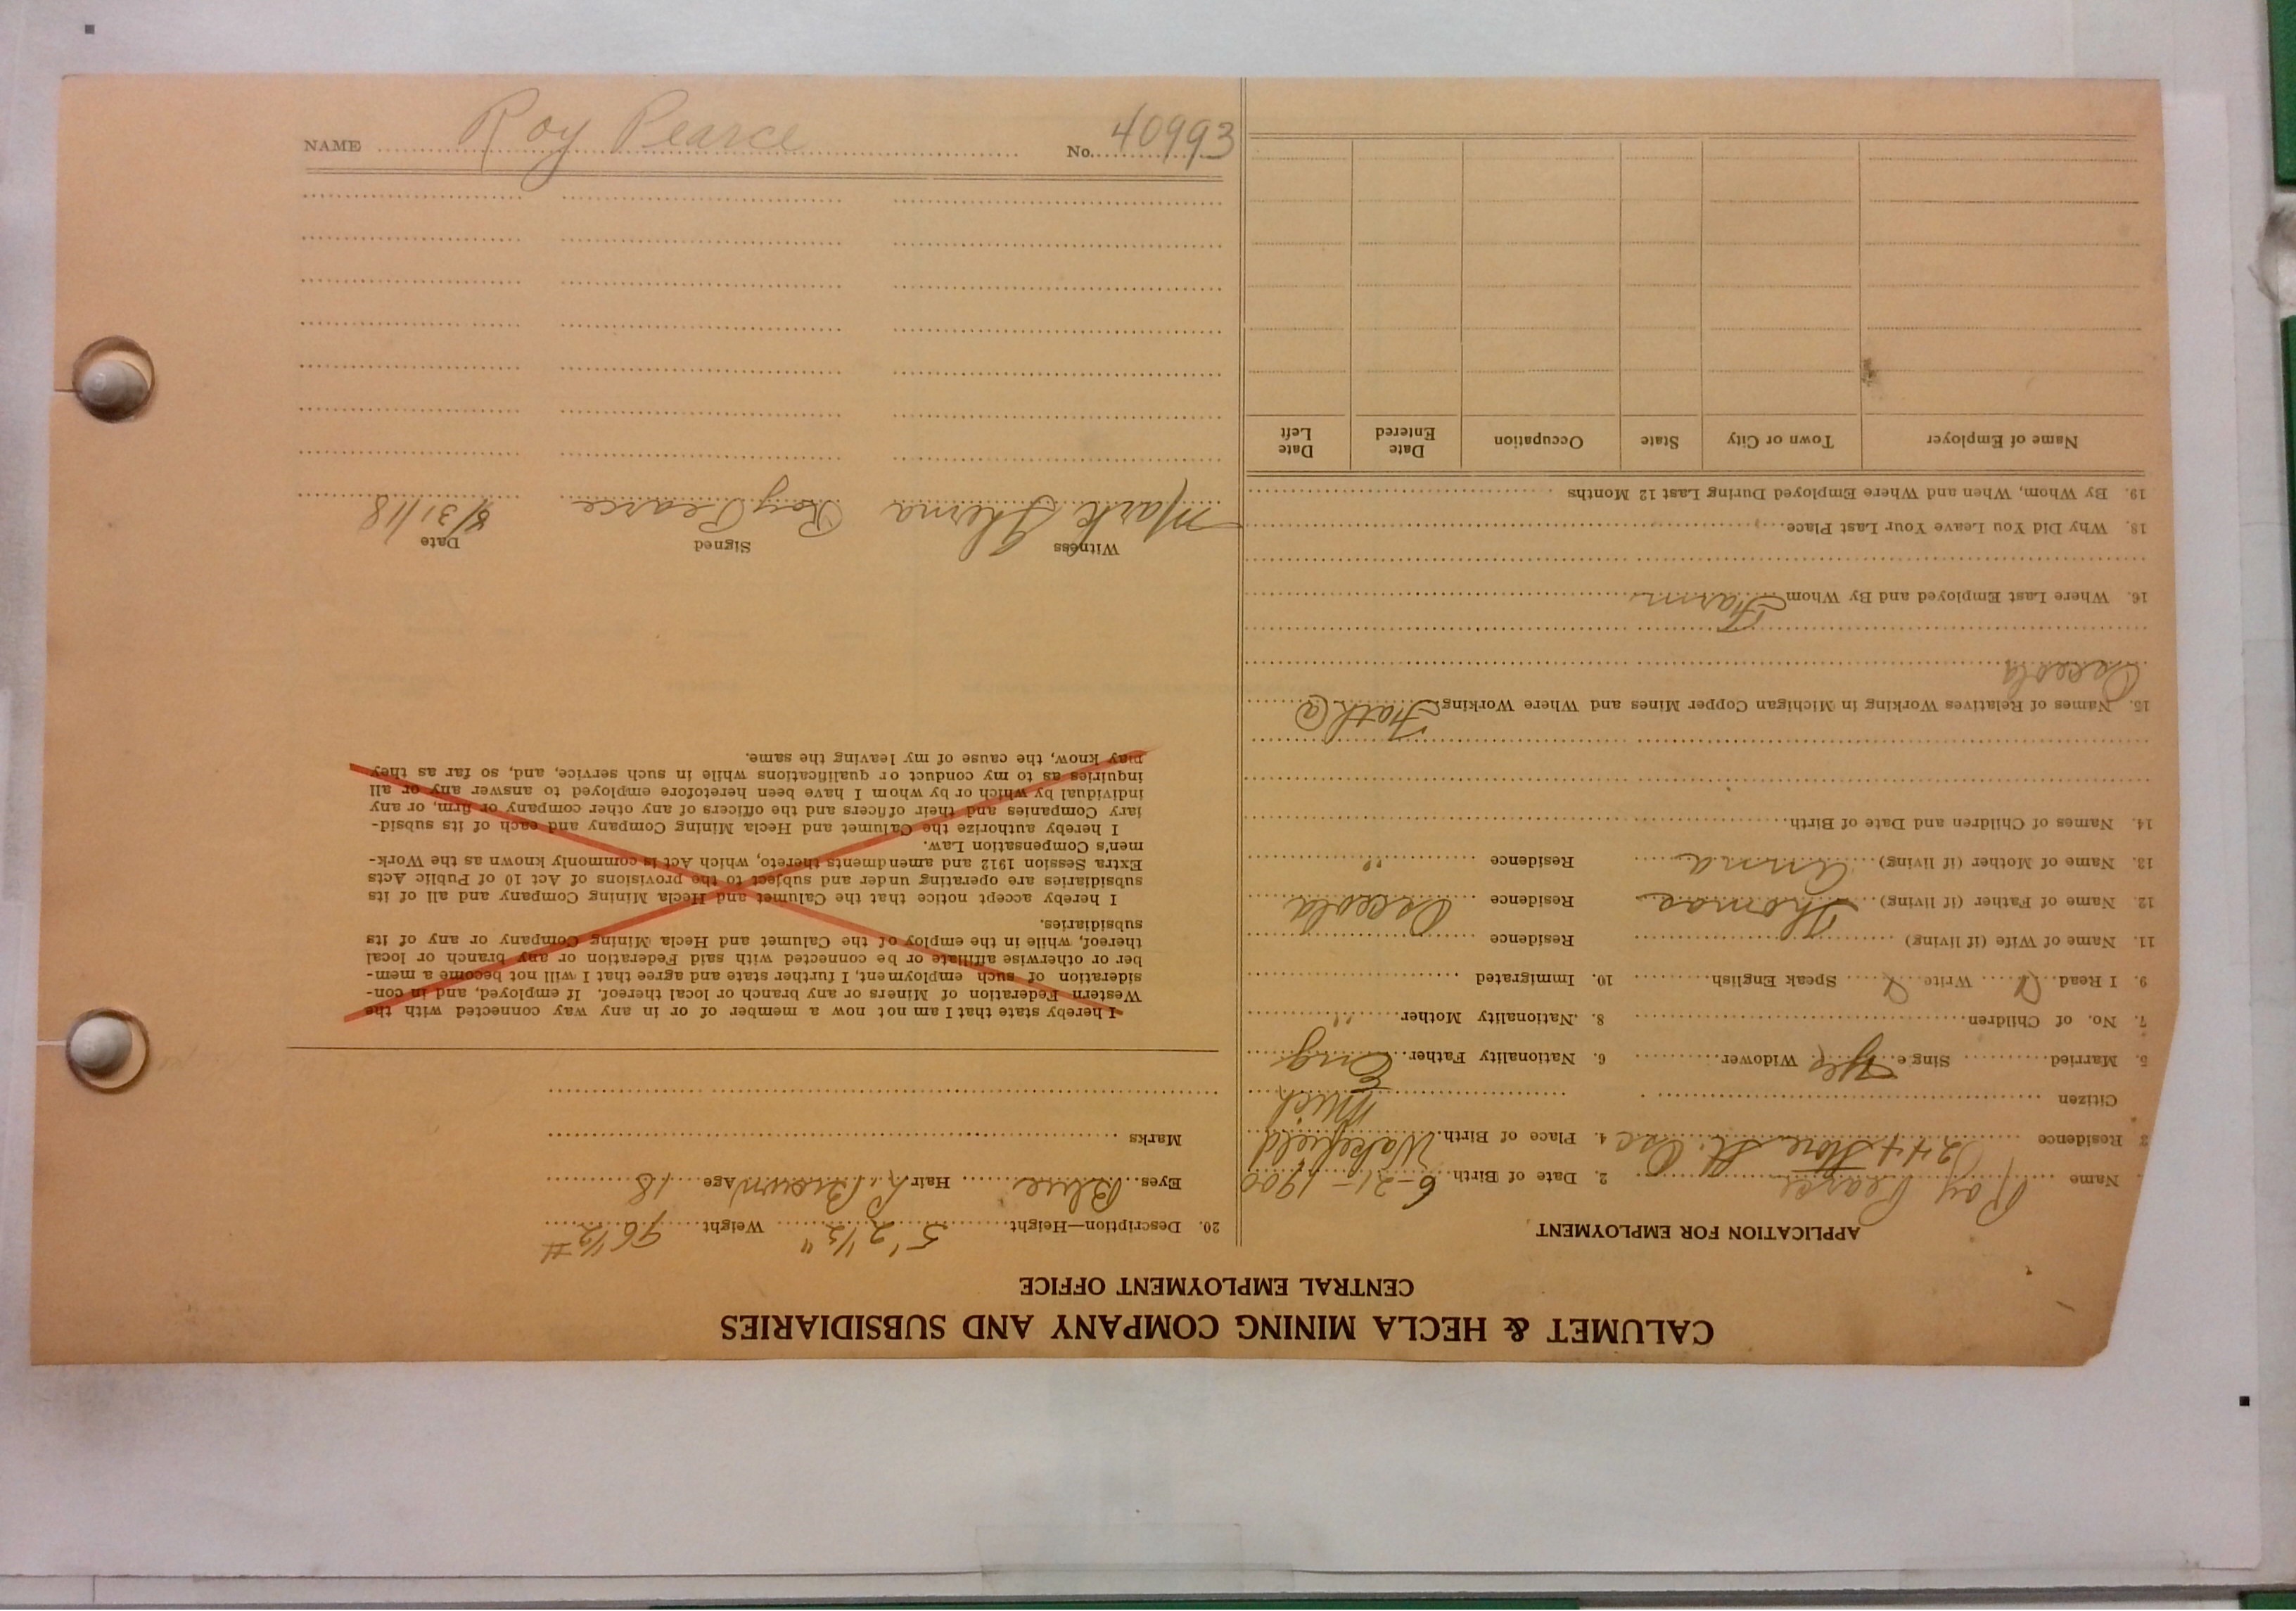 CALUMET & HECLA MINING COMPANY AND SUBSIDIARIES
CENTRAL EMPLOYMENT OFFICE
APPLICATION FOR EMPLOYMENT
Name Roy Pearce 2. Date of Birth. 6-21-1900
3 Residence St. Osc 4. Place of Birth. Wakefield
Citizen Mich
5. Married Sing e Yes Widower 6. Nationality Father. Eng
7. No. of Children 8. Nationality Mother "
9. I Read Write Speak English 10. Immigrated
11. Name of Wife (if living) Residence
12. Name of Father (if living) Thomas Residence Osceola
13. Name of Mother (if living) Anna Residence "
14. Names of Children and Date of Birth.
15. Names of Relatives Working in Michigan Copper Mines and Where Working. Fath @
Osceola
16. Where Last Employed and By Whom Farm
18. Why Did You Leave Your Last Place
19. By Whom, When and Where Employed During Last 12 Months
Name of Employer Town or City State Occupation Date Entered Date Left
20. Description—Height 5' 2 1/2" Weight 96 1/2 #
Eyes Blue Hair Brown Age 18
Marks
I hereby state that I am not now a member of or in any way connected with the
Western Federation of Miners or any branch or local thereof. If employed, and in con-
sideration of such employment, I further state and agree that I will not become a mem-
ber or otherwise affiliate or be connected with said Federation or any branch or local
thereof, while in the employ of the Calumet and Hecla Mining Company or any of its
subsidiaries.
I hereby accept notice that the Calumet and Hecla Mining Company and all of its
subsidiaries are operating under and subject to the provisions of Act 10 of Public Acts
Extra Session 1912 and amendments thereto, which Act is commonly known as the Work-
men's Compensation Law.
I hereby authorize the Calumet and Hecla Mining Company and each of its subsid-
iary Companies and their officers and the officers of any other company or firm, or any
individual by which or by whom I have been heretofore employed to answer any or all
inquiries as to my conduct or qualifications while in such service, and, so far as they
may know, the cause of my leaving the same.
Witness Signed Date
Mark Roy Pearce 8/31/18
NAME Roy Pearce No. 40993